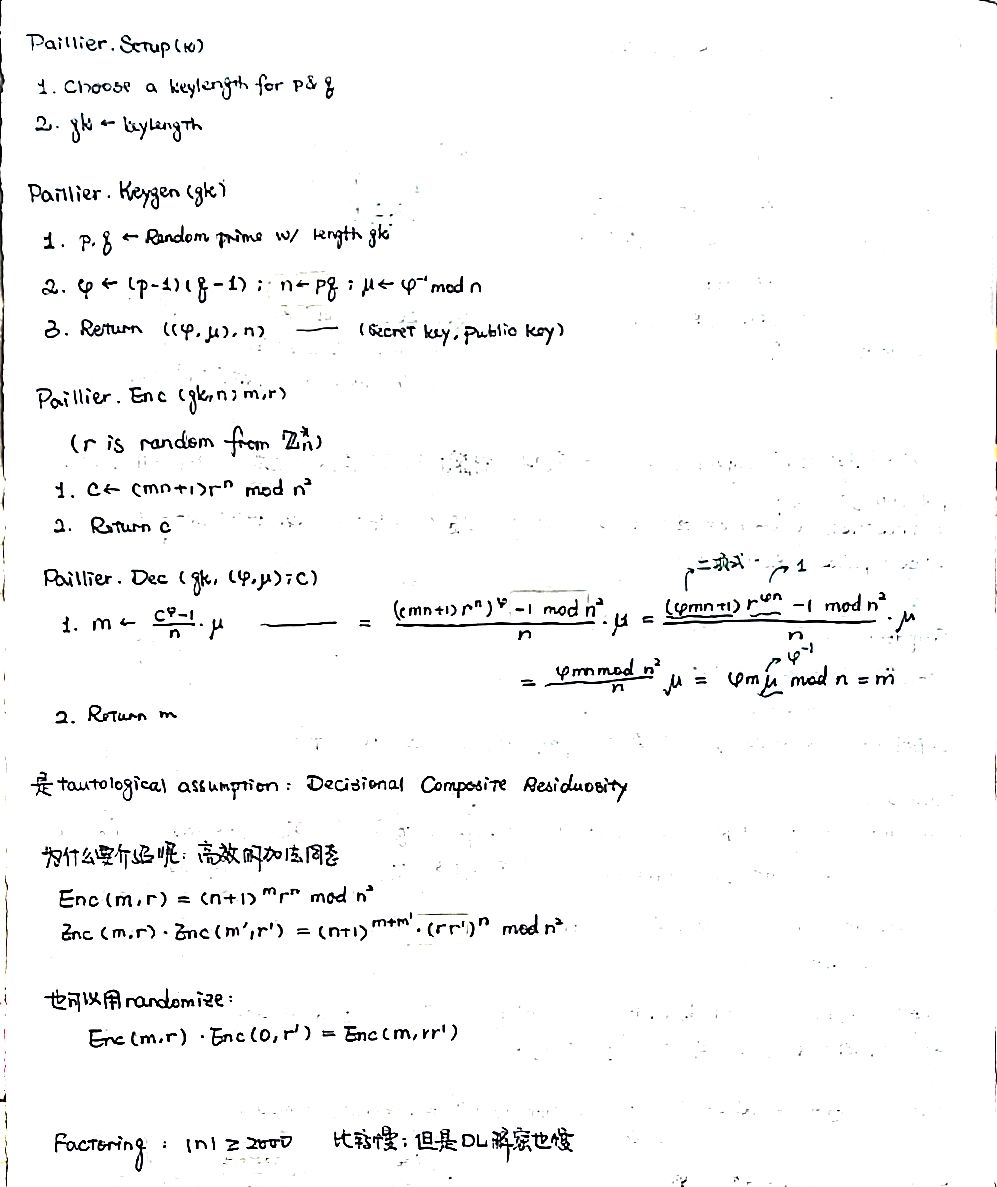 Paillier. Setup (κ)
1. Choose a keylength for p & q
2. gk ← keylength
Paillier. Keygen (gk)
1. p, q ← Random prime w/ length gk
2. φ ← (p-1)(q-1) ; n ← pq ; μ ← φ⁻¹ mod n
3. Return ((φ, μ), n) —— (Secret key, public key)
Paillier. Enc (gk, n; m, r)
(r is random from ℤₙ*)
1. C ← (mn+1)rⁿ mod n²
2. Return c
Paillier. Dec (gk, (φ, μ); C)
二项式 1
1. m ← (C^φ-1)/n · μ —— = (((mn+1) rⁿ)^φ -1 mod n²)/n · μ = ((φmn+1) r^φn -1 mod n²)/n · μ
φ⁻¹
= (φmn mod n²)/n μ = φmμ mod n = m
2. Return m
是 tautological assumption: Decisional Composite Residuosity
为什么要介绍呢: 高效的加法同态
Enc (m, r) = (n+1)^m rⁿ mod n²
Enc (m, r) · Enc (m', r') = (n+1)^m+m' · (rr')ⁿ mod n²
也可以用 randomize:
Enc (m, r) · Enc (0, r') = Enc (m, rr')
Factoring : |n| ≥ 2000 比较慢; 但是 DL 解密也慢